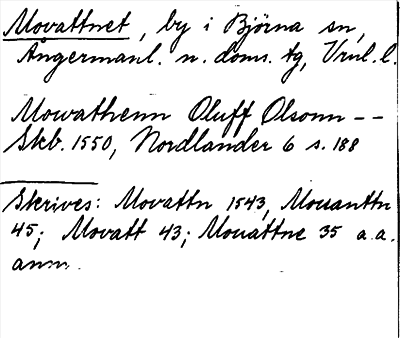 Movattnet, by i Björna sn,
Ångermanl. n. doms. tg, Vnrl. l.
Mowathenn Oluff Olsonn --
Skb. 1550, Nordlander 6 s. 188
Skrives: Movattn 1543, Mouanttn
45; Movatt 43; Mouattne 35 a.a.
anm.